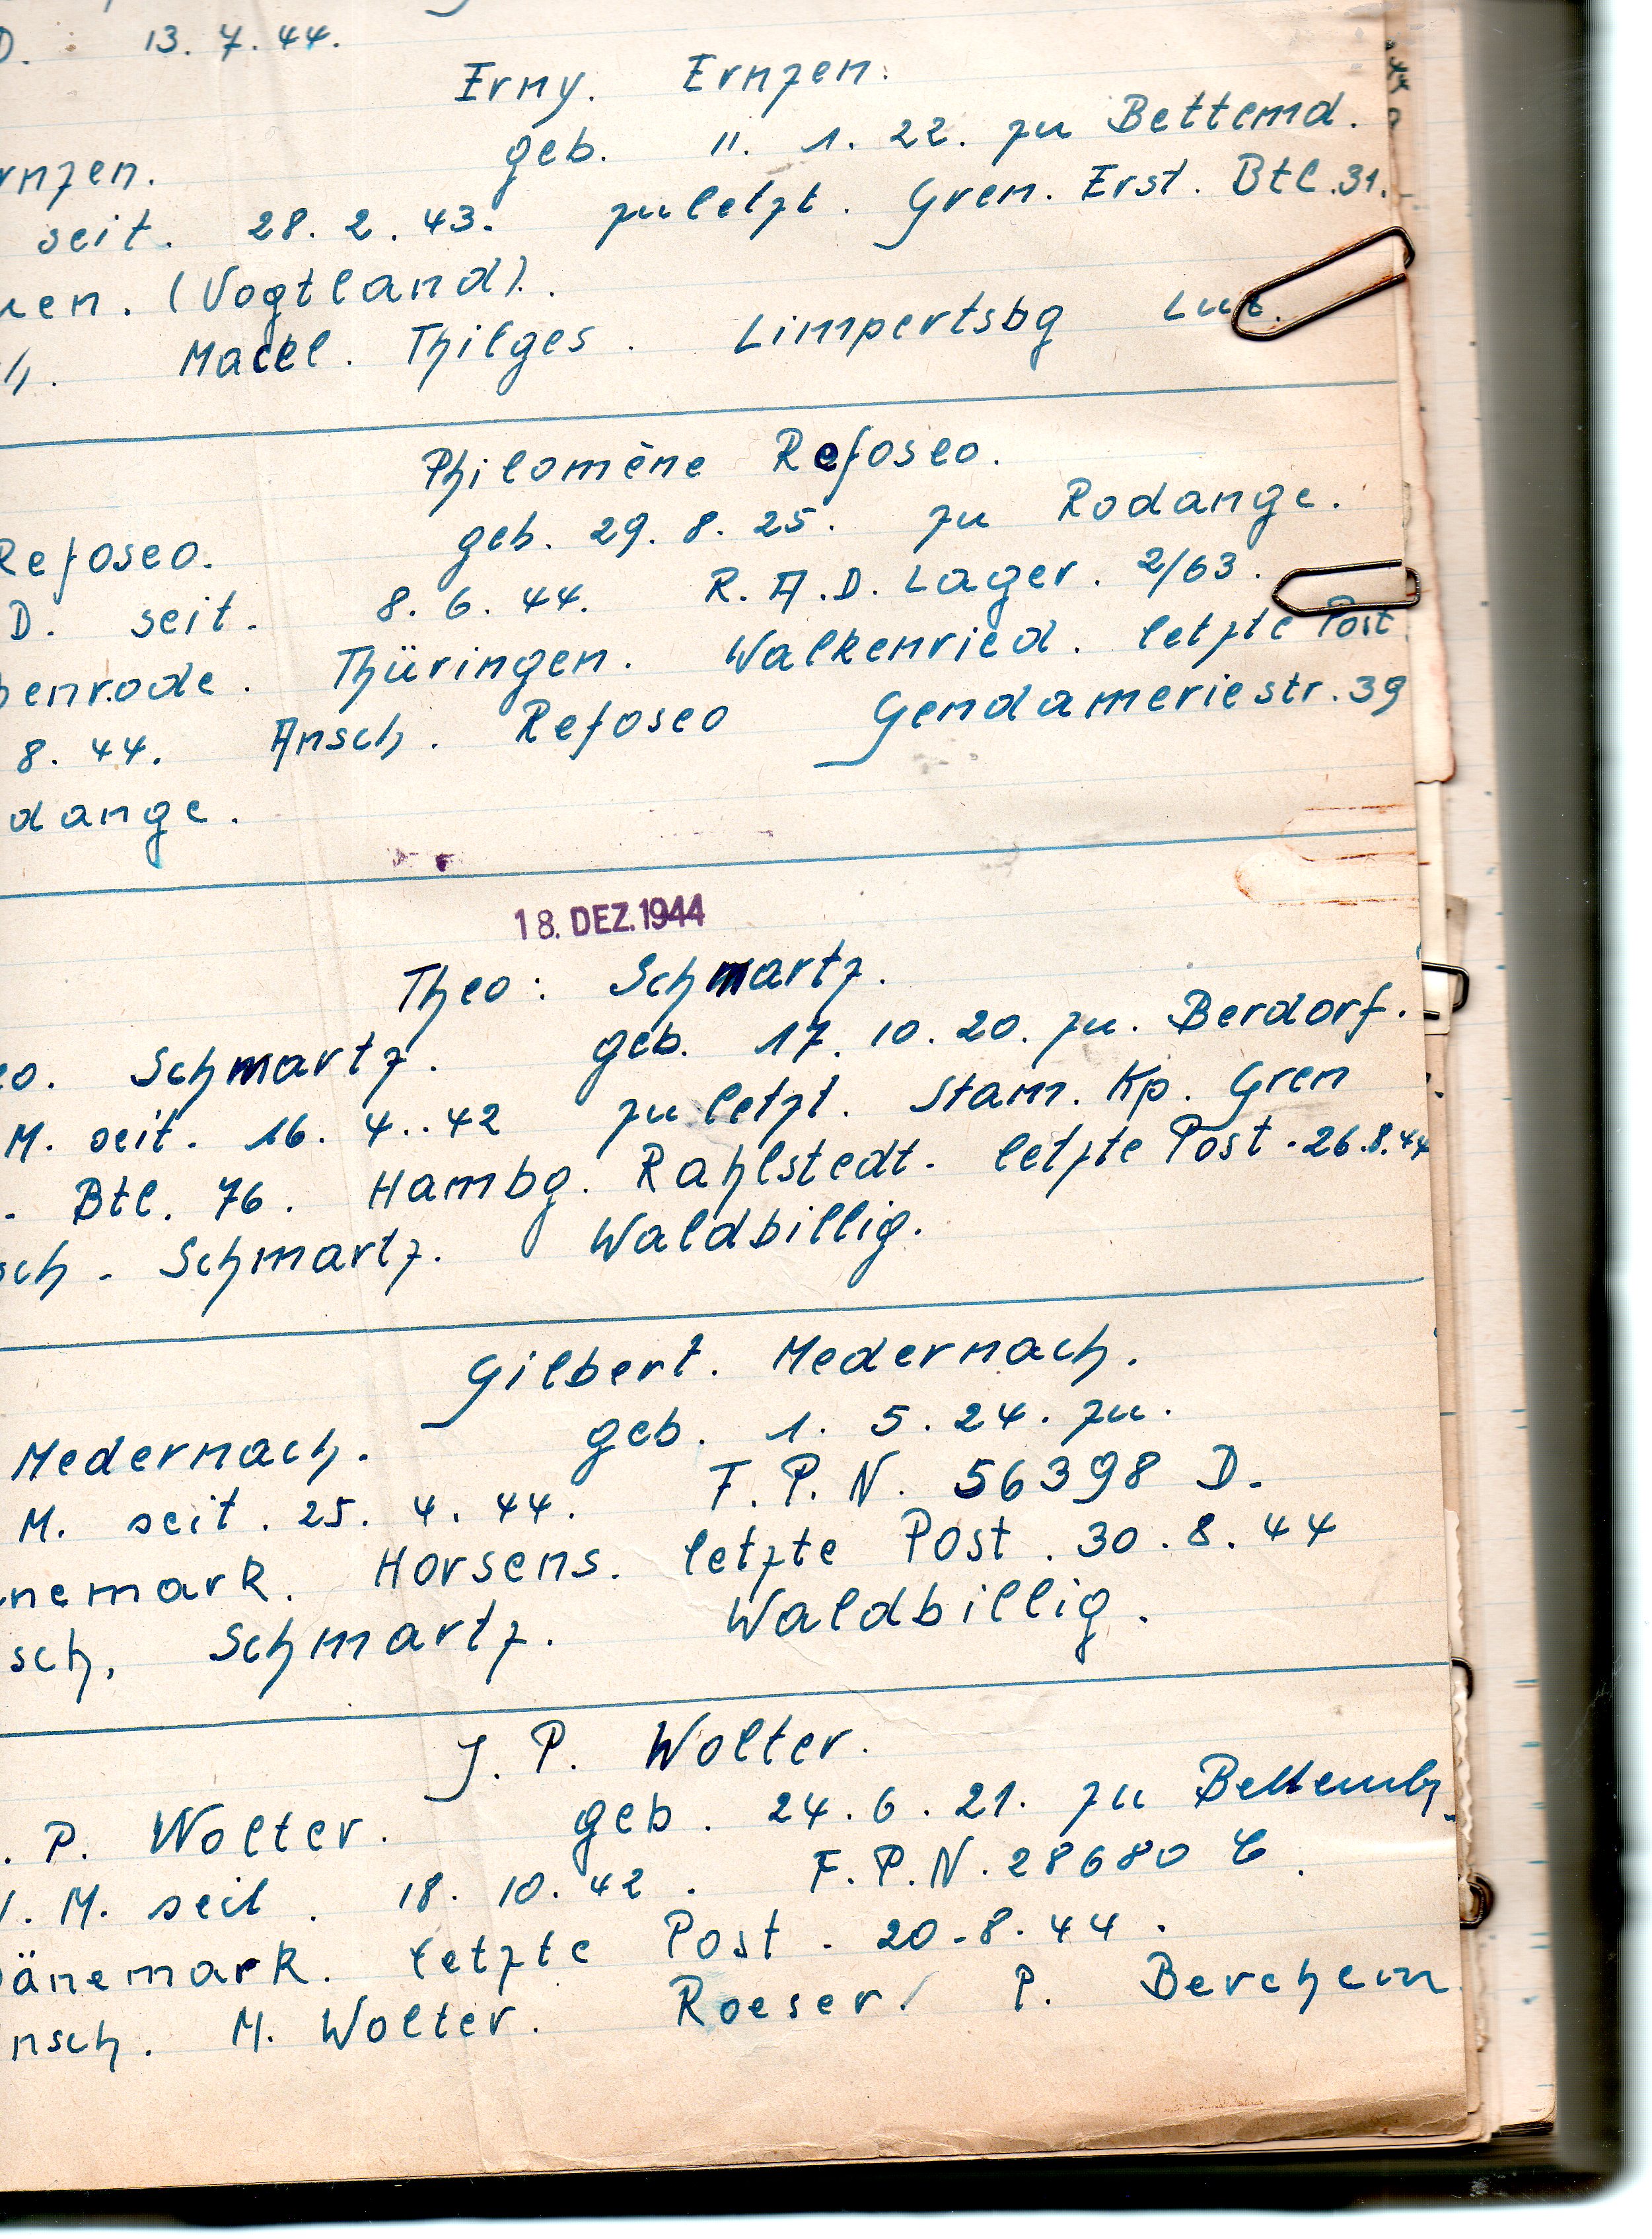 D. 13. 7. 44.
Erny. Ernzen.
rnzen. geb. 11. 1. 22. zu Bettemd.
seit. 28. 2. 43. zuletzt. Gren. Erst. Btl. 31.
uen. (Vogtland).
h. Macel. Thilges. Limpertsbg Lux.
Philomène Refosco.
Refosco. geb. 29. 8. 25. zu Rodange.
D. seit. 8. 6. 44. R. A. D. Lager. 2/63.
benrode. Thüringen. Walkenried. letzte Post
8. 44. Ansch. Refosco Gendameriestr. 39
dange.
18. DEZ. 1944
Theo: Schmartz.
eo. Schmartz. geb. 17. 10. 20. zu. Berdorf.
M. seit. 16. 4. 42 zuletzt. Stam. Kp. Gren
. Btl. 76. Hambg. Rahlstedt. letzte Post. 26.8.44
sch. Schmartz. Waldbillig.
Gilbert. Medernach.
Medernach. geb. 1. 5. 24. zu.
M. seit. 25. 4. 44. F. P. N. 56398 D.
nemark. Horsens. letzte Post. 30. 8. 44
sch. Schmartz. Waldbillig.
J. P. Wolter.
. P. Wolter. geb. 24. 6. 21. zu Bettembg.
. M. seit. 18. 10. 42. F. P. N. 28680 C.
änemark. letzte Post. 20. 8. 44.
nsch. M. Wolter. Roeser / P. Berchem